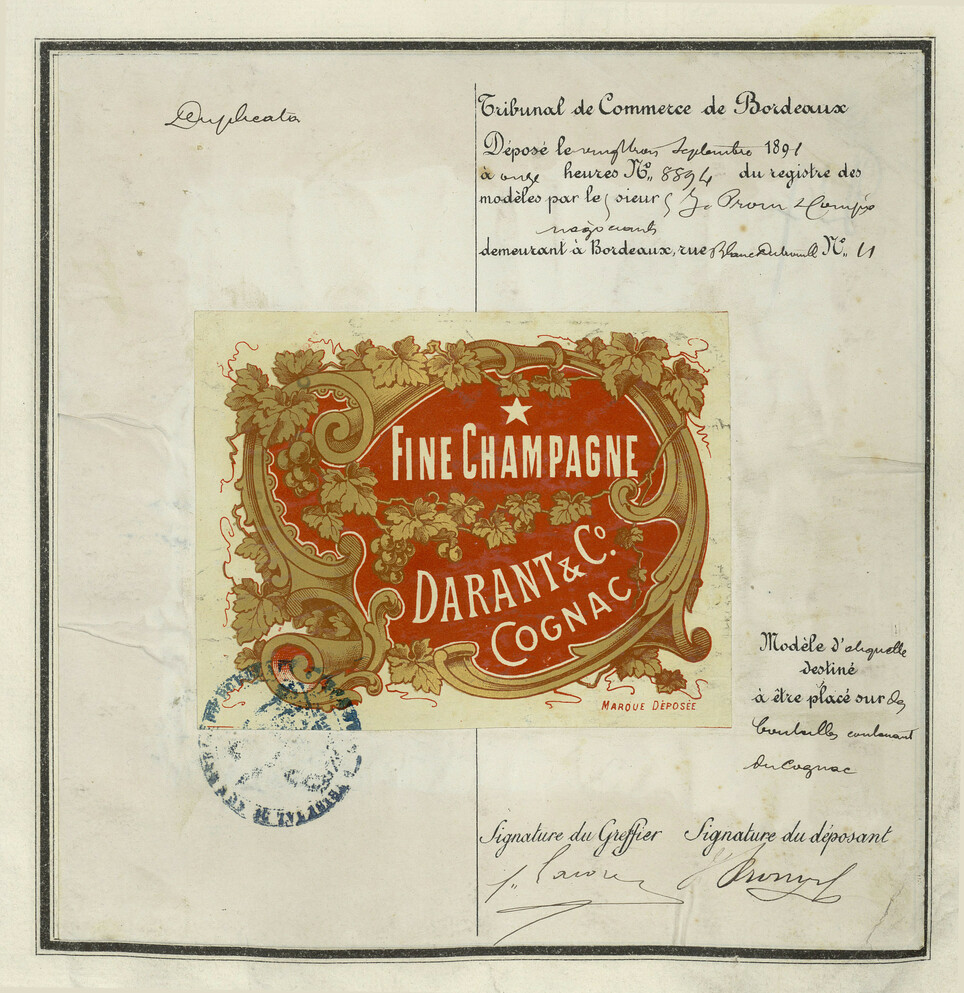 Duplicata
Tribunal de Commerce de Bordeaux
Déposé le vingt trois Septembre 1891
à onze heures N° 8894 du registre des
modèles par le sieur J. Prom & Compie
négociants
demeurant à Bordeaux, rue N° 11
FINE CHAMPAGNE
DARANT & Co.
COGNAC
MARQUE DÉPOSÉE
Modèle d'étiquette
destiné
à être placé sur des
bouteilles contenant
du Cognac
Signature du Greffier Signature du déposant